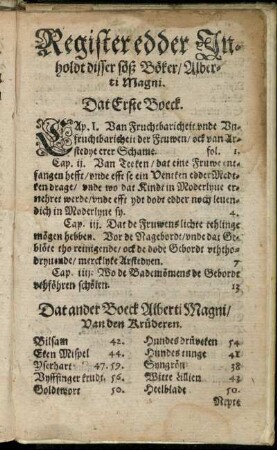 Register edder In-
holdt disser söß Böker/ Alber-
ti Magni.
Dat Erste Boeck.
CAp. I. Van Fruchtbaricheit vnde Vn-
fruchtbaricheit der Fruwen/ ock van Ar-
stedye erer Schame. fol. 1.
Cap. ij. Van Teeken/ dat eine Fruwe ent-
fangen hefft/ vnde efft se ein Knecken edder Medt-
ken drage/ vnde wo dat Kindt in Moderlyue er-
nehret werde/ vnde efft ydt dode edder noch leuen-
dich in Moderlyue sy. 4.
Cap. iij. Dat de Fruwens lichte telinge
mögen hebben. Vor de Nageborde/ vnde dat Ge-
blöte tho reinigende/ ock de dode Gebordt vththo-
dryuende/ mercklyke Arstedyen. 7
Cap. iiij. Wo de Bademömens de Gebordt
vthföhren schölen. 13
Dat ander Boeck Alberti Magni/
Van den Krüderen.
Bilsam 42.
Eten Mispel 44.
Yserhart 47. 59.
Vyffinger krudt. 56.
Goldtwort 50.
Hundes drüueken 54
Hundes tunge 41
Syngrön 38
Witte Lillien 43
Heelbladt 50.
Nepte